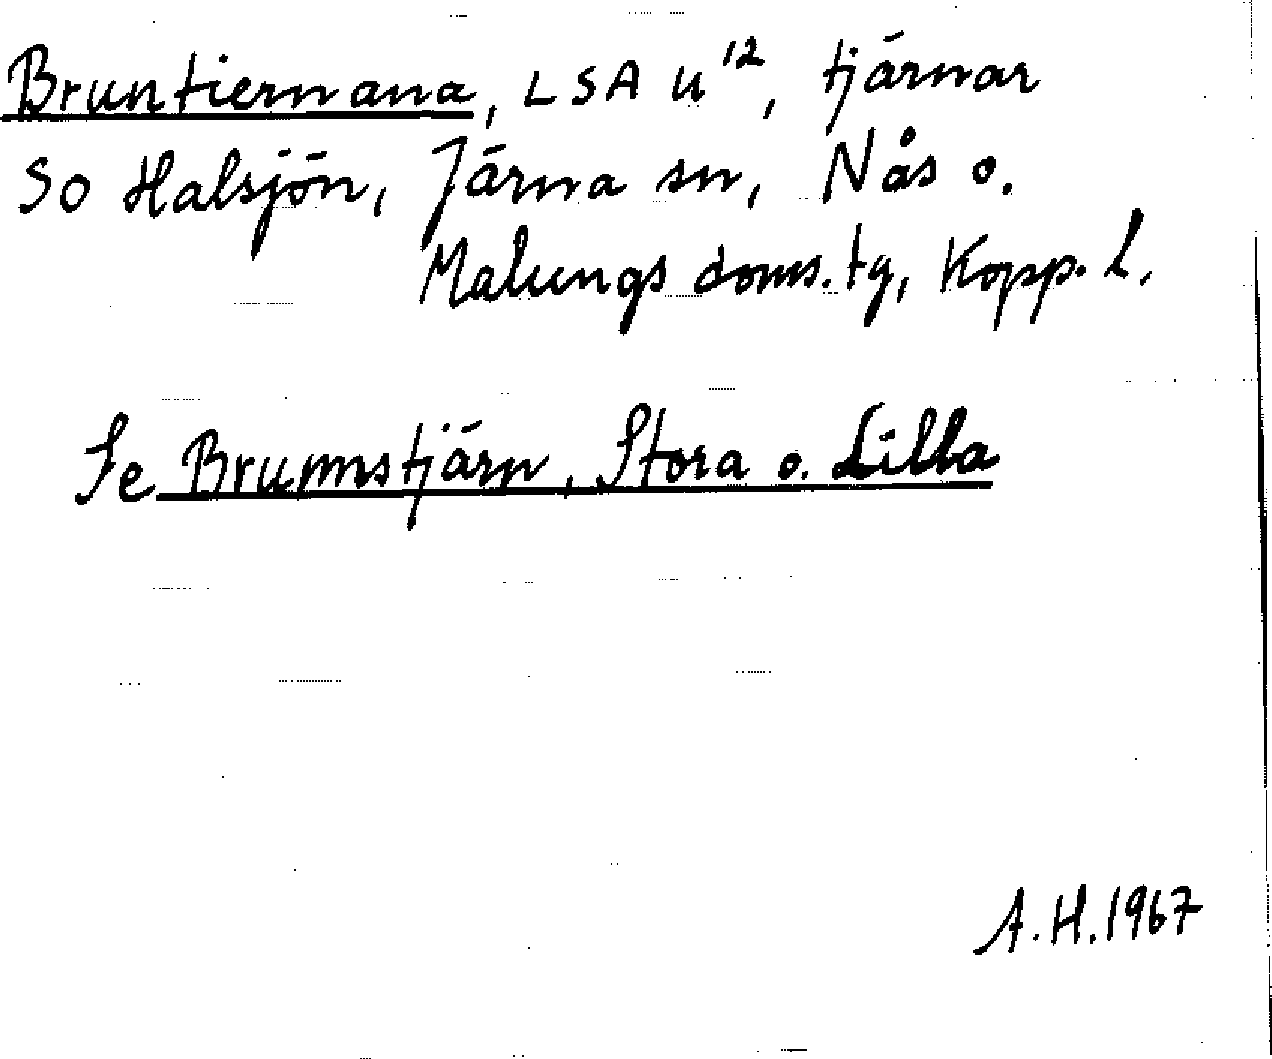 Bruntiernana, LSA u¹², tjärnar
SO Halsjön, Järna sn, Nås o.
Malungs doms.tg, Kopp. l.
Se Brunnstjärn, Stora o. Lilla
A.H. 1967